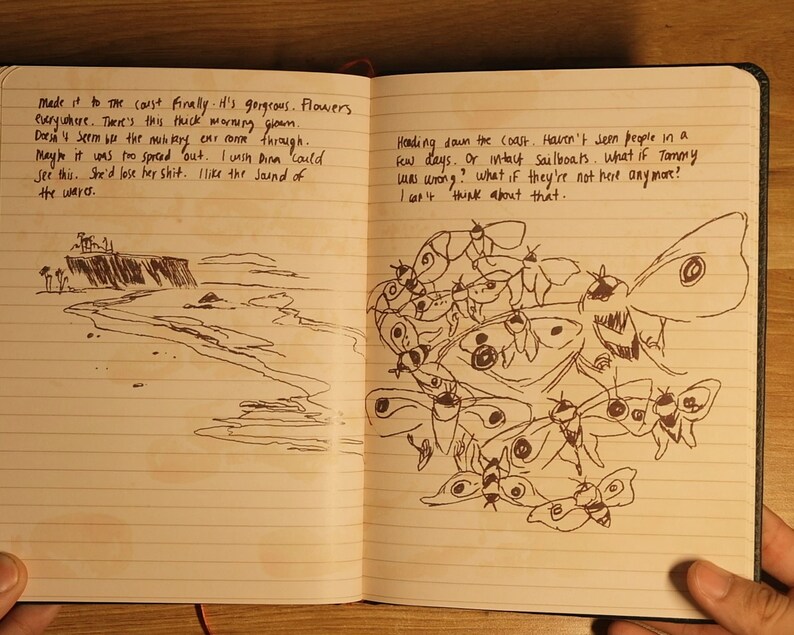 Made it to the coast finally. It's gorgeous. Flowers
everywhere. There's this thick morning gloam.
Doesn't seem like the military ever came through.
Maybe it was too spread out. I wish Dina could
see this. She'd lose her shit. I like the sound of
the waves.
Heading down the coast. Haven't seen people in a
few days. Or intact sailboats. What if Tommy
was wrong? What if they're not here anymore?
I can't think about that.